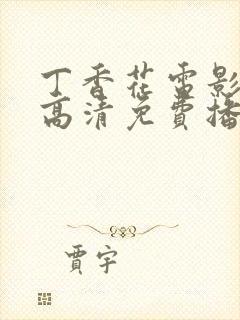 丁香花雷影
高清免費播
賈宇